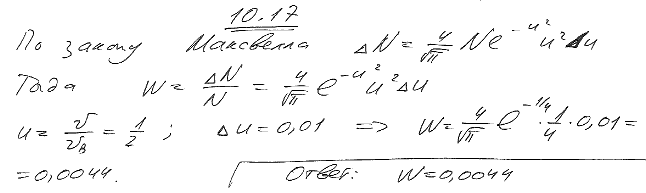 10.17
По закону Максвелла ΔN = 4/√π N e^(-u²) u² Δu
Тогда W = ΔN/N = 4/√π e^(-u²) u² Δu
u = v/v_в = 1/2 ; Δu = 0,01 => W = 4/√π e^(-1/4) · 1/4 · 0,01 =
= 0,0044. Ответ: W = 0,0044